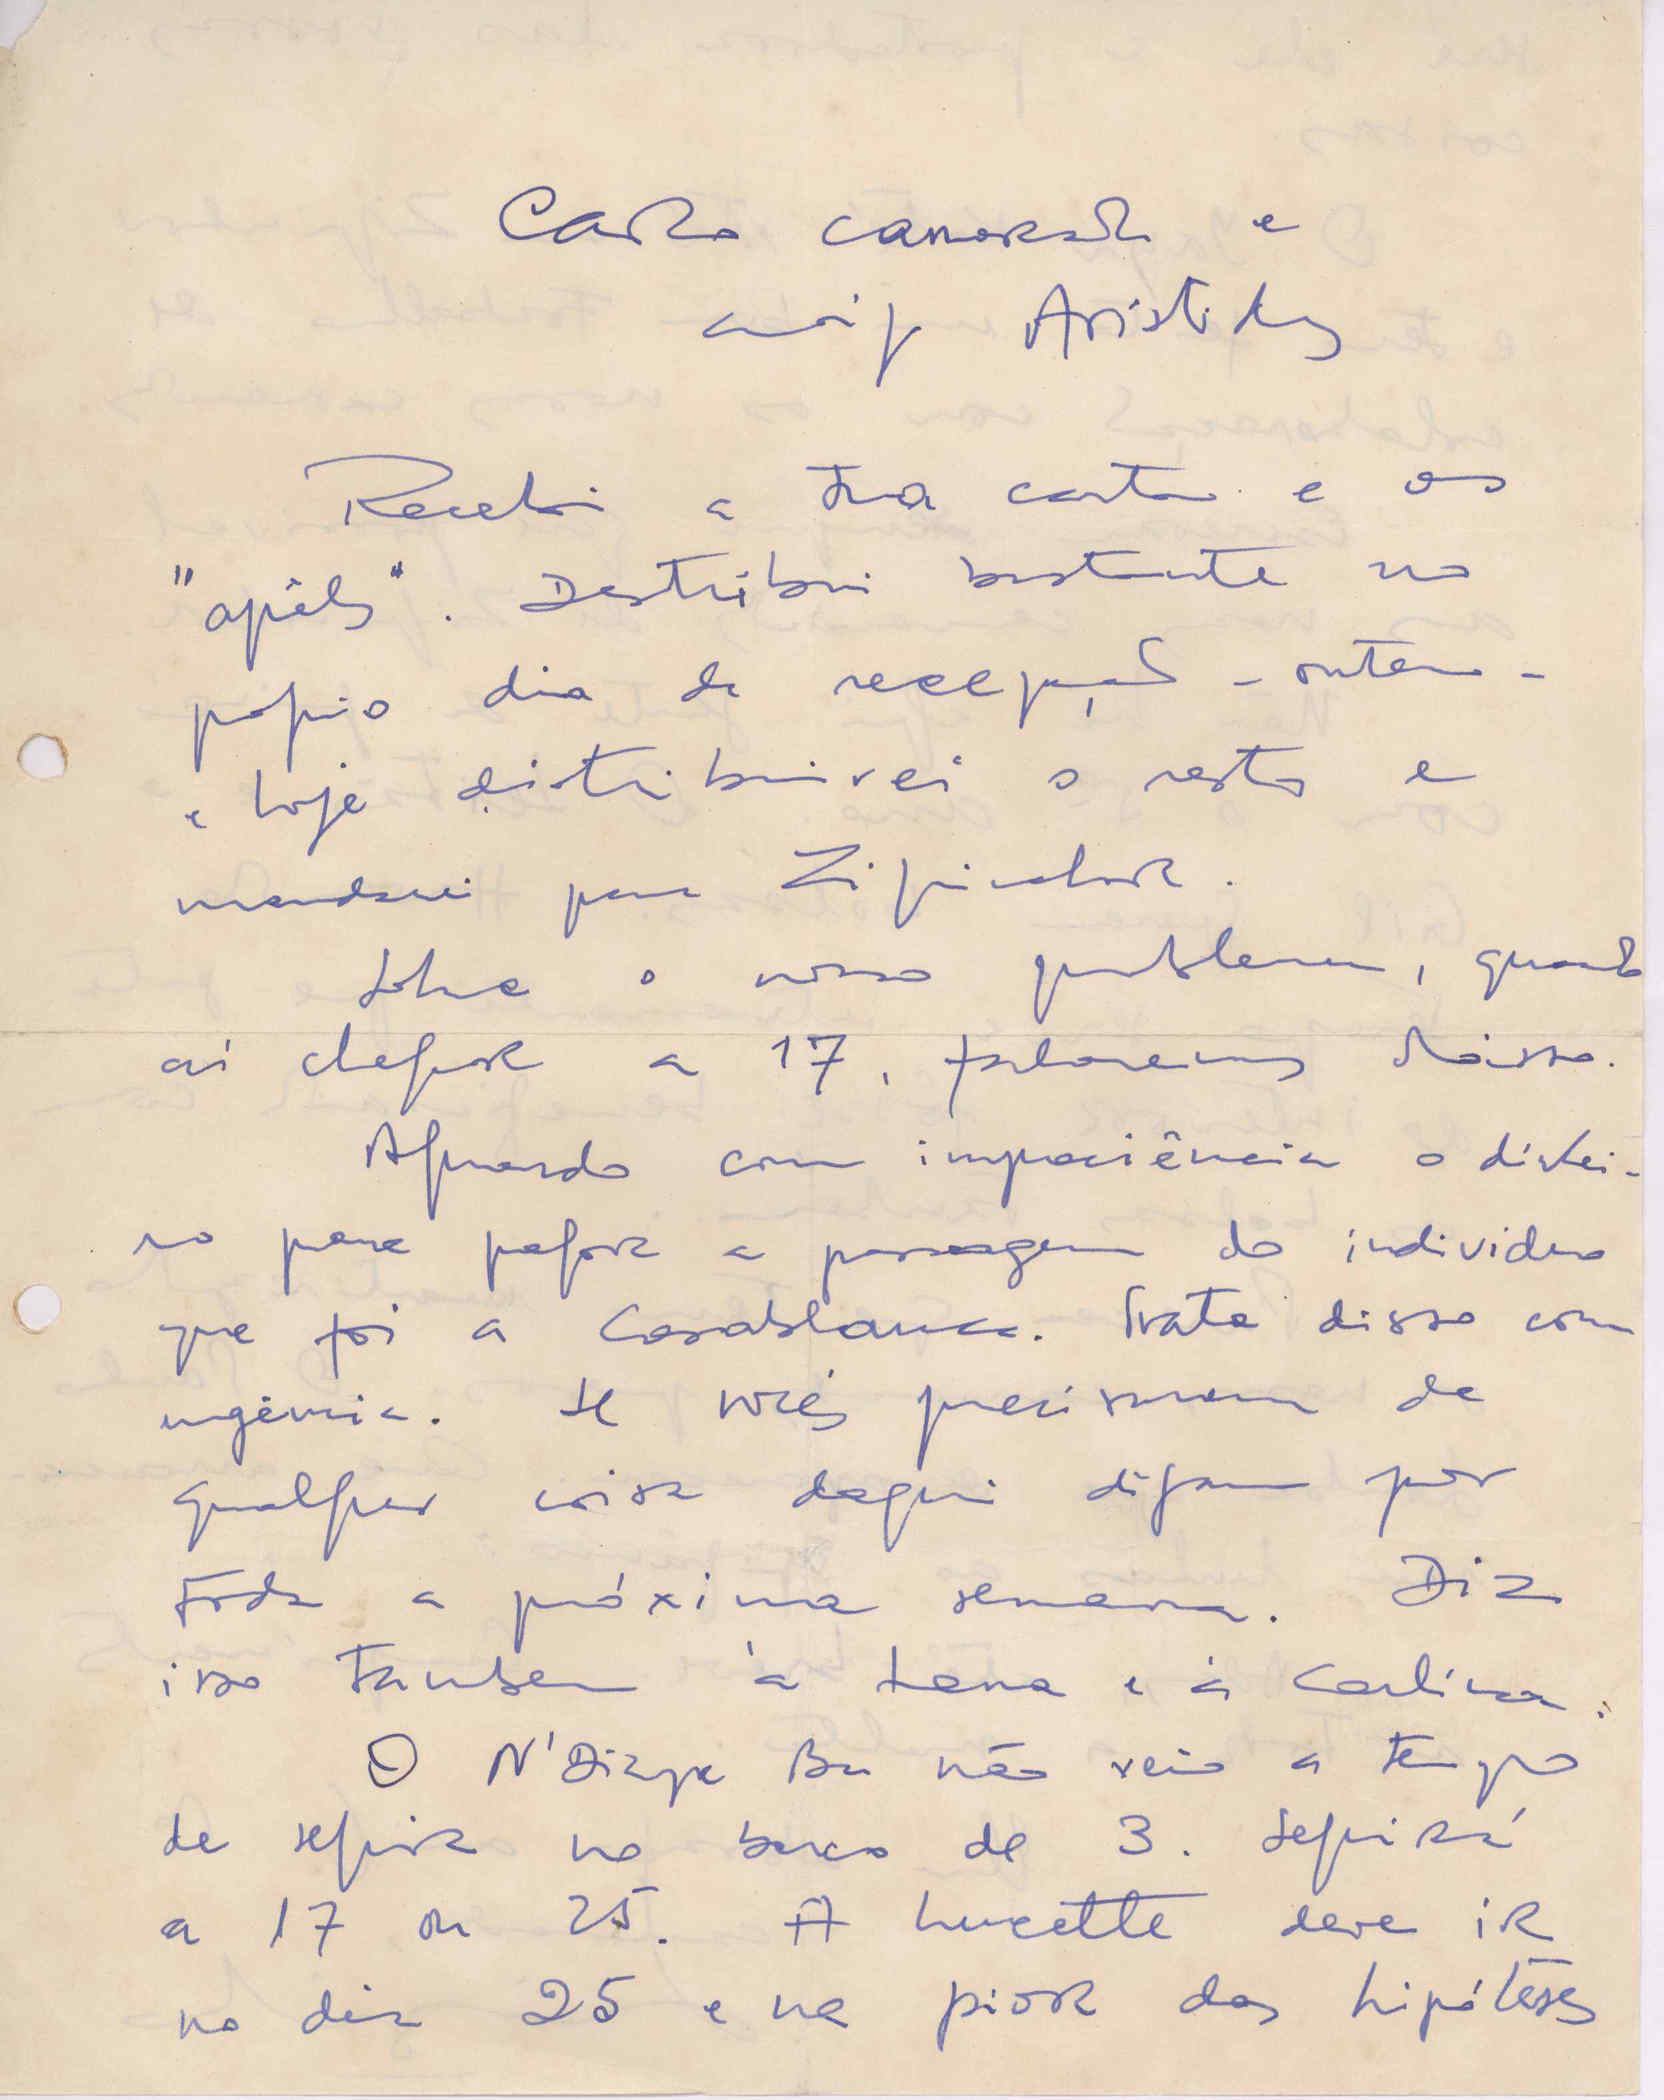 Caro camarada e
amigo Aristides
Recebi a tua carta e os
"apêlos". Destribui bastante no
próprio dia da recepção - ontem -
e hoje distribuirei o resto e
mandarei para Ziguinchor.
Sobre o nosso problema, quando
aí chegar a 17, falaremos disso.
Aguardo com impaciência o dinhei-
ro para pagar a passagem do individuo
que foi a Casablanca. Trata disso com
urgência. Se vocês precisarem de
qualquer coisa daqui digam por
toda a próxima semana. Diz
isso tambem à Lena e à Carlina.
O N'Diaye Ba não veio a tempo
de seguir no barco de 3. Seguirá
a 17 ou 25. A Lucette deve ir
no dia 25 e na pior das hipóteses